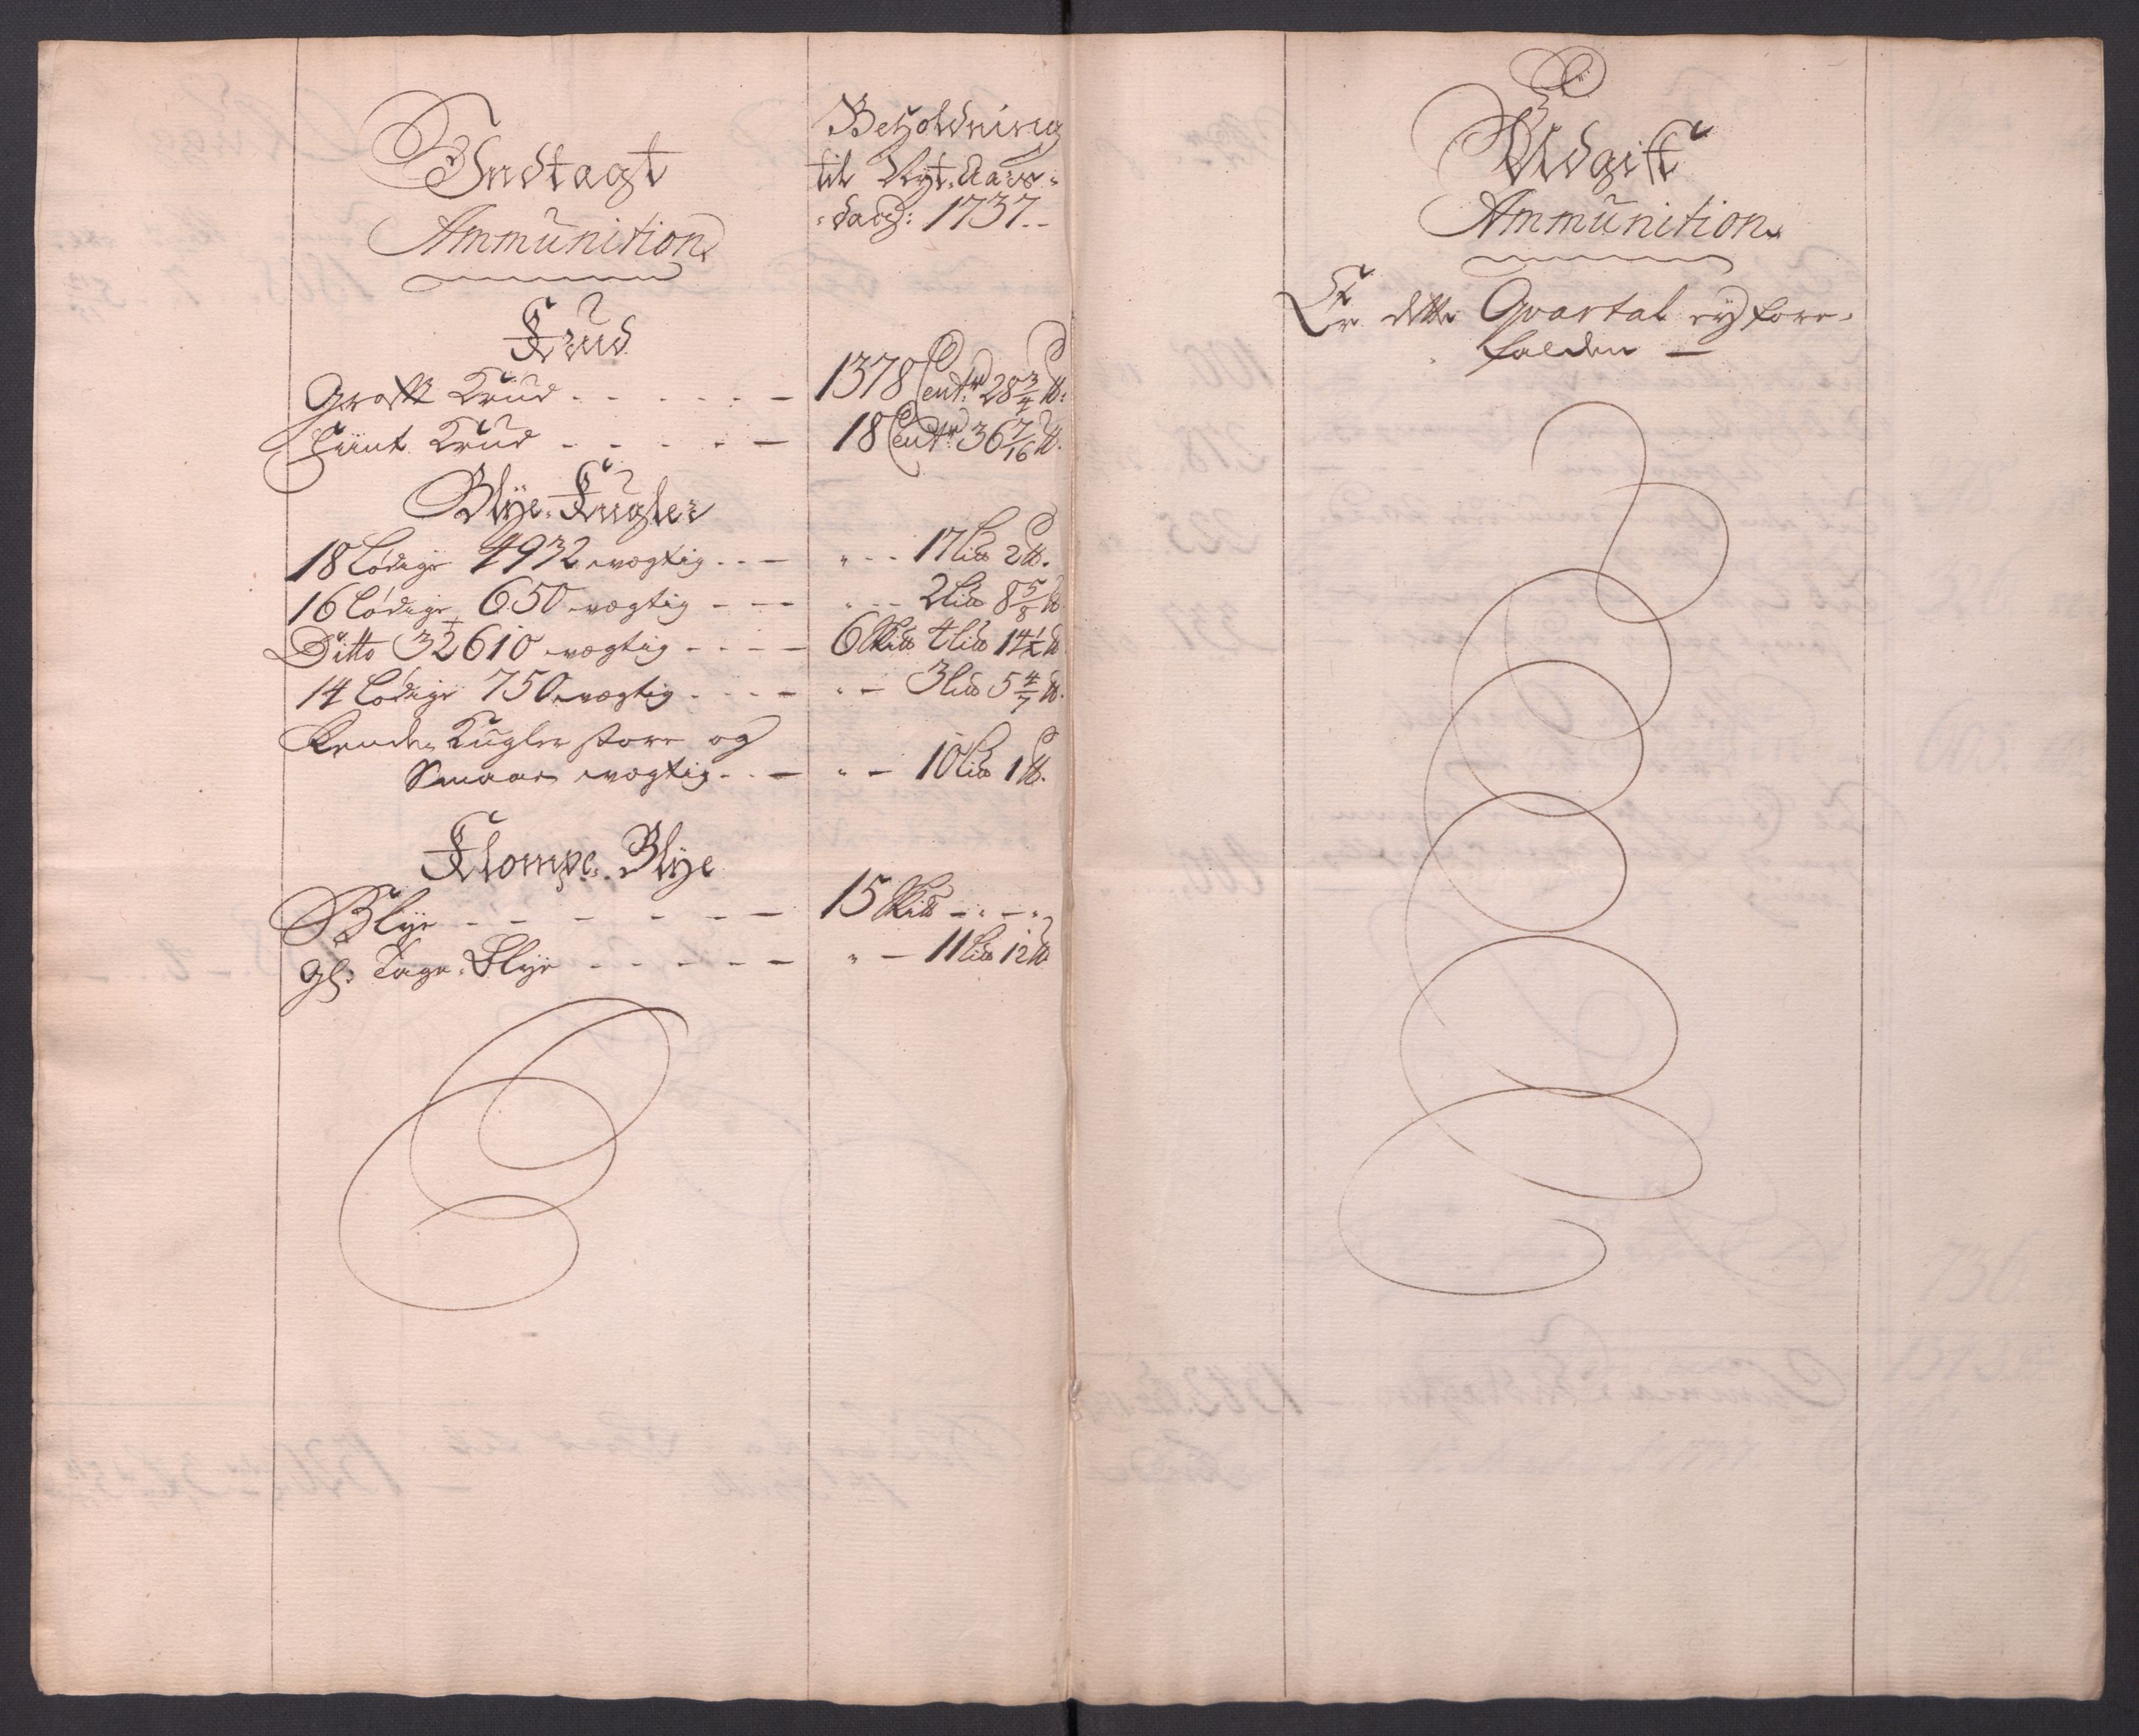 Indtagt
Ammunition
Beholdning
til Nyt-Aars-
dag: 1737
Krud
Groft Krud 1378 Centr 28 3/4 ℔:
Fiint Krud 18 Centr 36 7/16 ℔.
Blye-Kugler
18 Lødige 4932 wægtig " 17 Li℔ 2 ℔.
16 Lødige 650 wægtig 2 Li℔ 8 5/8 ℔
Ditto 32610 wægtig 6 Ski℔ 4 Li℔ 14 ℔
14 Lødige 750 wægtig " 3 Li℔ 5 4/7 ℔.
Kugler store og
Smaae wægtig " 10 Li℔ 1 ℔.
Klompe-Blye
Blye 15 Ski℔ " "
Gl: Tage-Blye " 11 Li℔ 12 ℔
Udgift
Ammunition
Er dette Qvartal ey fore-
falden